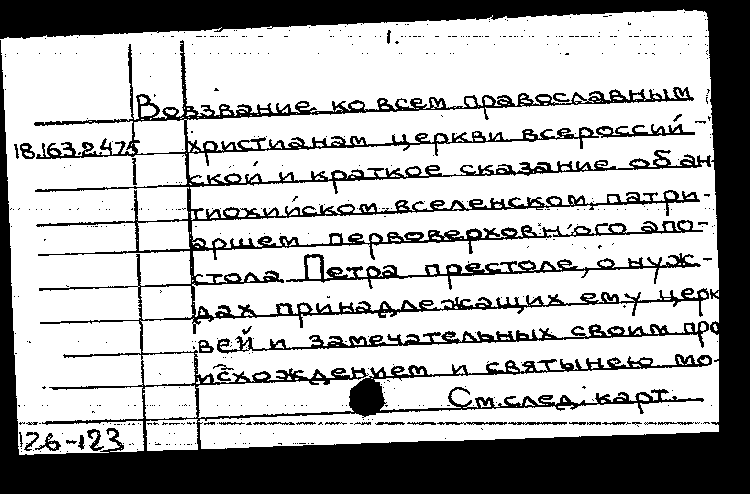 1.
Воззвание ко всем православным
18.163.2.475 христианам церкви всероссий-
ской и краткое сказание об ан-
тиохийском вселенском, патри-
аршем первоверховного апо-
стола Петра престоле, о нуж-
дах принадлежащих ему церк
вей и замечательных своим про
исхождением и святынею мо-
См. след. карт.
126-123